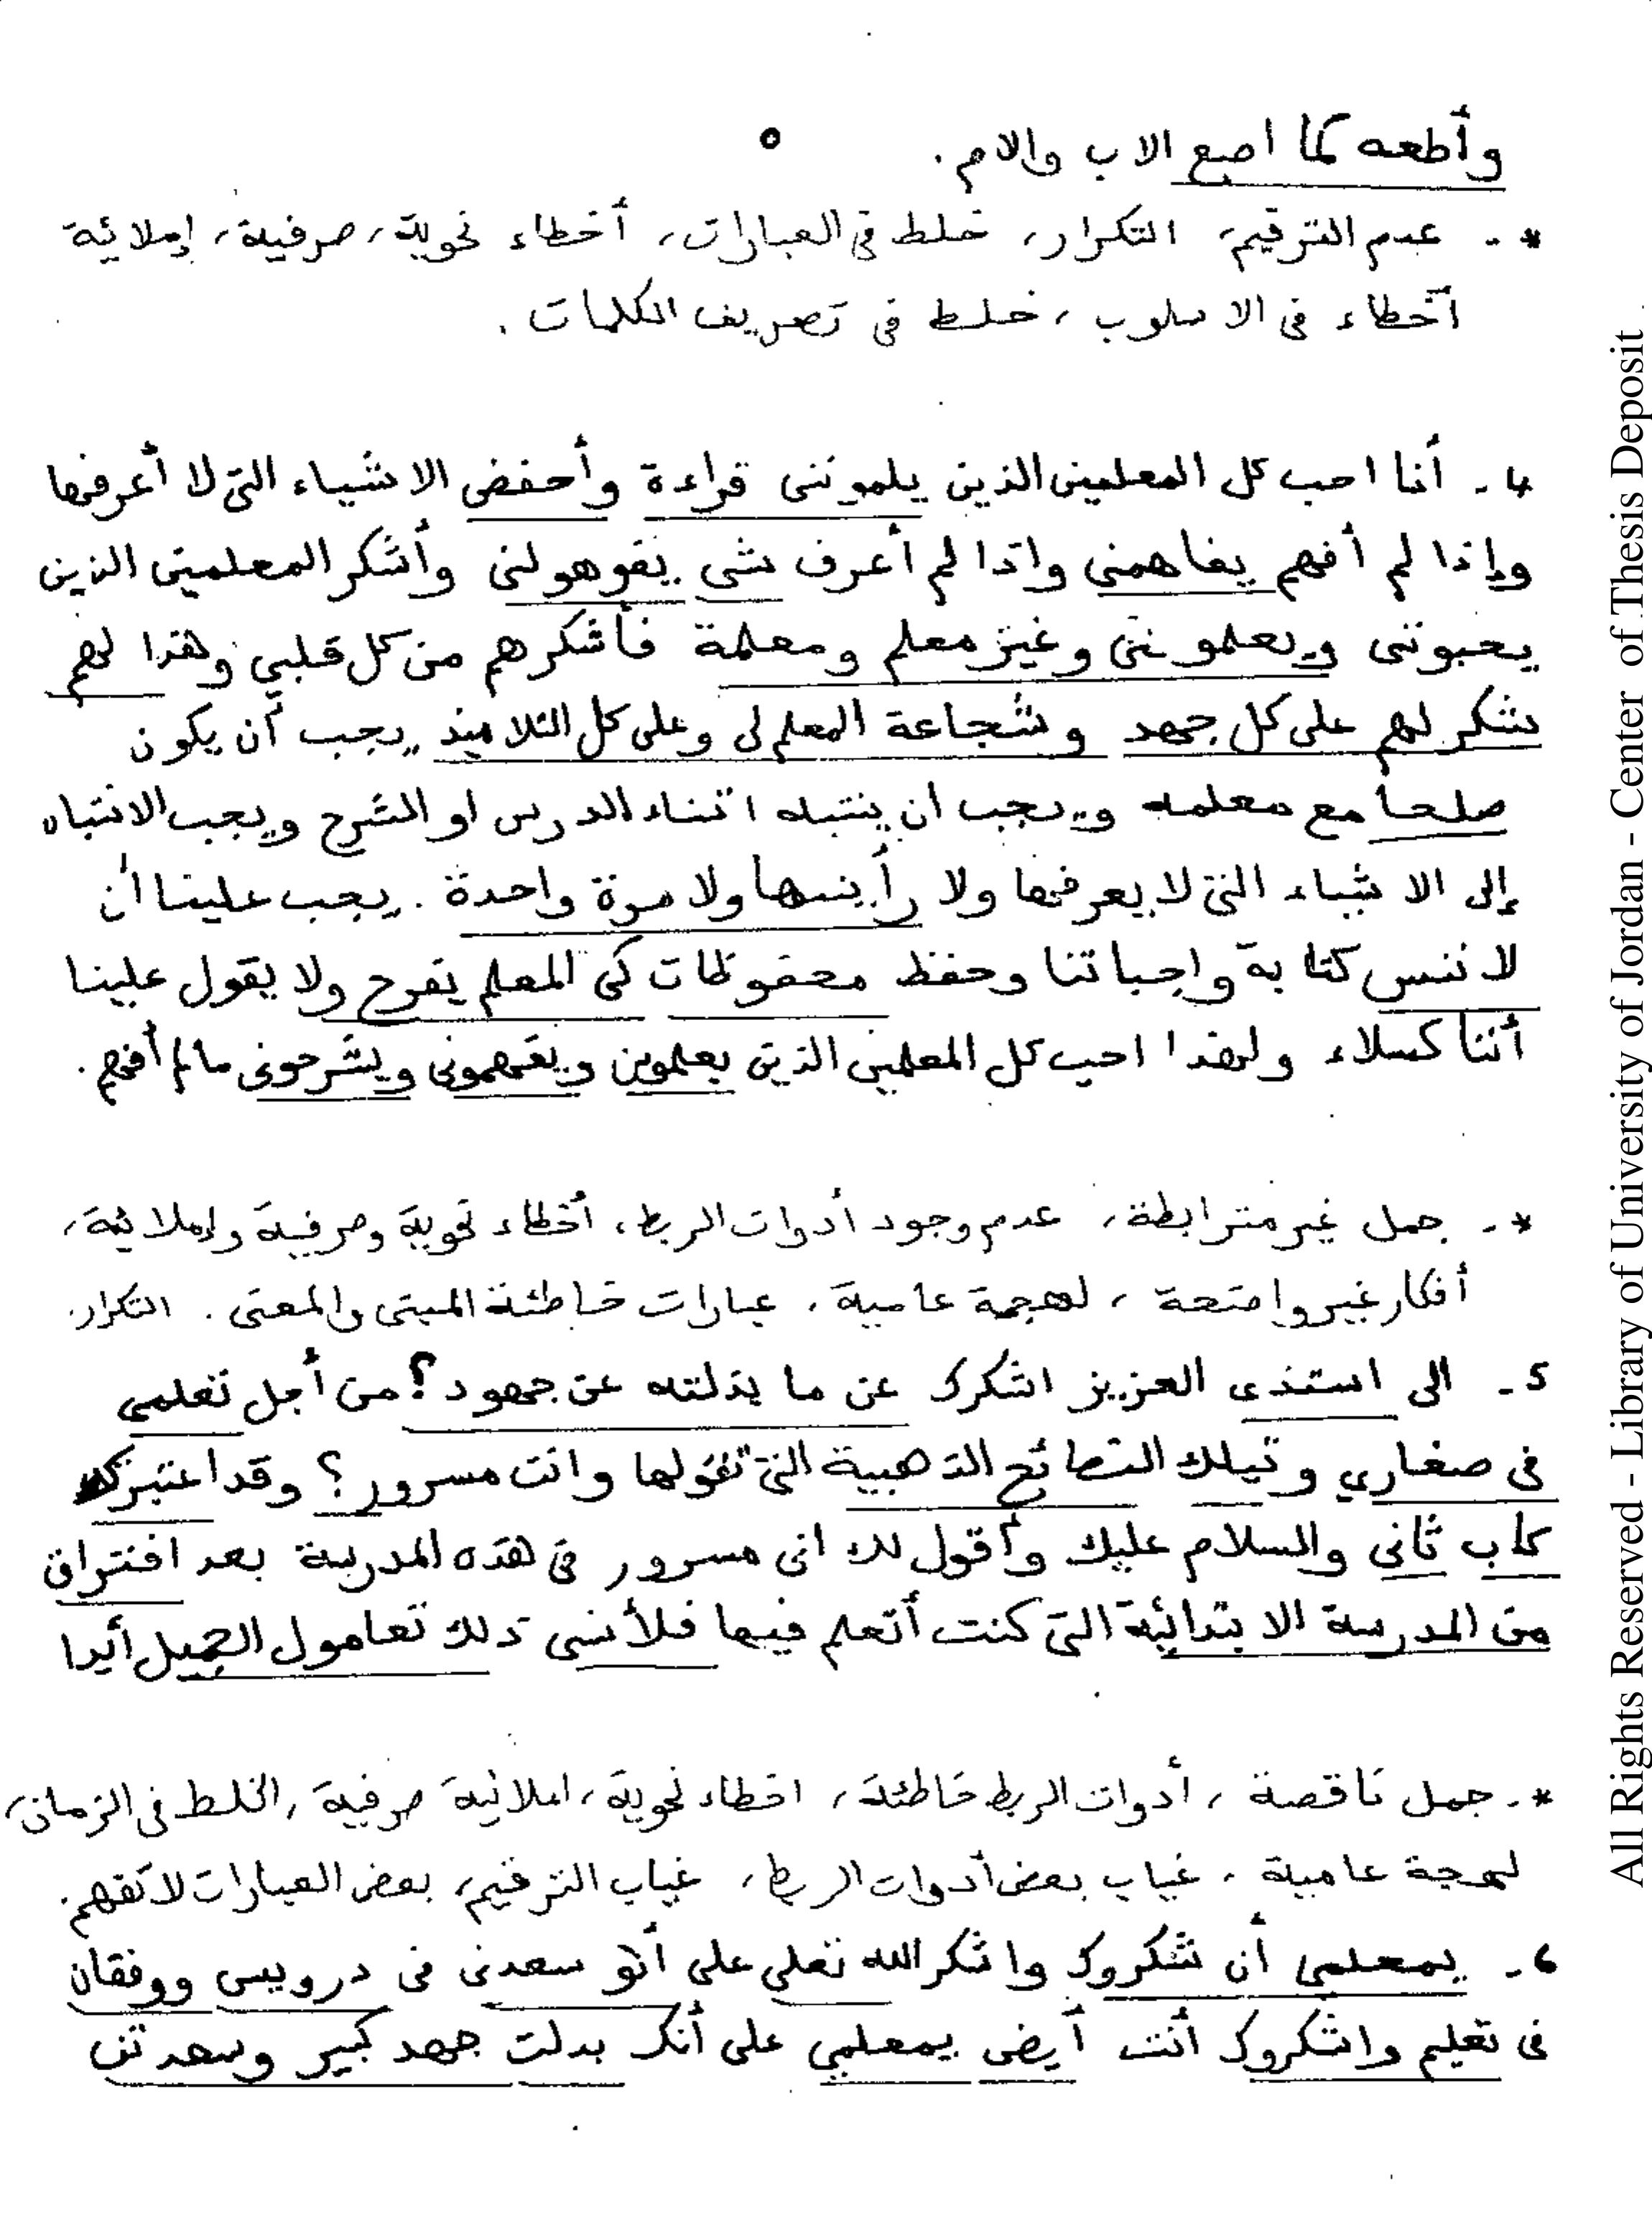 وأطعه كما اصبع الاب والام.
*- عدم الترقيم، التكرار، خلط في العبارات، أخطاء نحوية، صرفية، إملائية
أخطاء في الاسلوب، خلط في تصريف الكلمات.
4- أنا احب كل المعلمين الذين يلمونني قراءة وأحفض الاشياء التي لا أعرفها
وإذا لم أفهم يفاهمني واذا لم أعرف شي يقوهولني وأشكر المعلمين الذين
يحبونني ويعلمونني وغيز معلم ومعلمة فأشكرهم من كل قلبي وهذا لهم
شكر لهم على كل جهد وشجاعة المعلم لي وعلى كل التلاميذ يجب أن يكون
صلحا مع معلمه ويجب ان ينتبه اثناء الدرس او الشرح ويجب الانتباه
إلى الاشياء التي لا يعرفها ولا رأينسها ولا مرة واحدة. يجب علينا أن
لا ننس كتابة واجباتنا وحفظ محفوظات كي المعلم يفرح ولا يقول علينا
أننا كسلاء ولهذا احب كل المعلمين الذين يعلموين ويفهموني ويشرحوني ما لم أفهم.
*- جمل غير مترابطة، عدم وجود أدوات الربط، أخطاء نحوية وصرفية وإملائية،
أفكار غير واضحة، لهجة عامية، عبارات خاطئة المبنى والمعنى. التكرار.
5- الى استذى العزيز اشكرك عن ما بذلته عن جهود؟ من أجل تعلمي
في صغاري وتيلك النصائح الذهبية التي تقولها وانت مسرور؟ وقد اعتبرك
كاب ثاني والسلام عليك وأقول لك اني مسرور في هذه المدرسة بعد افتراق
من المدرسة الابتدائية التي كنت أتعلم فيها فلأنسى ذلك تعامول الجميل أبدا
*- جمل ناقصة، أدوات الربط خاطئة، اخطاء نحوية، املائية صرفية، الخلط في الزمان،
لهجة عامية، غياب بعض أدوات الربط، غياب الترقيم، بعض العبارات لا تفهم.
6- يمعلمي أن شكروك واشكر الله تعلي على أنهو سعدني في درويسي ووفقان
في تعليم واشكروك أنت أيض يمعلمي على أنك بدلت جهد كبير وسعدتن
All Rights Reserved - Library of University of Jordan - Center of Thesis Deposit